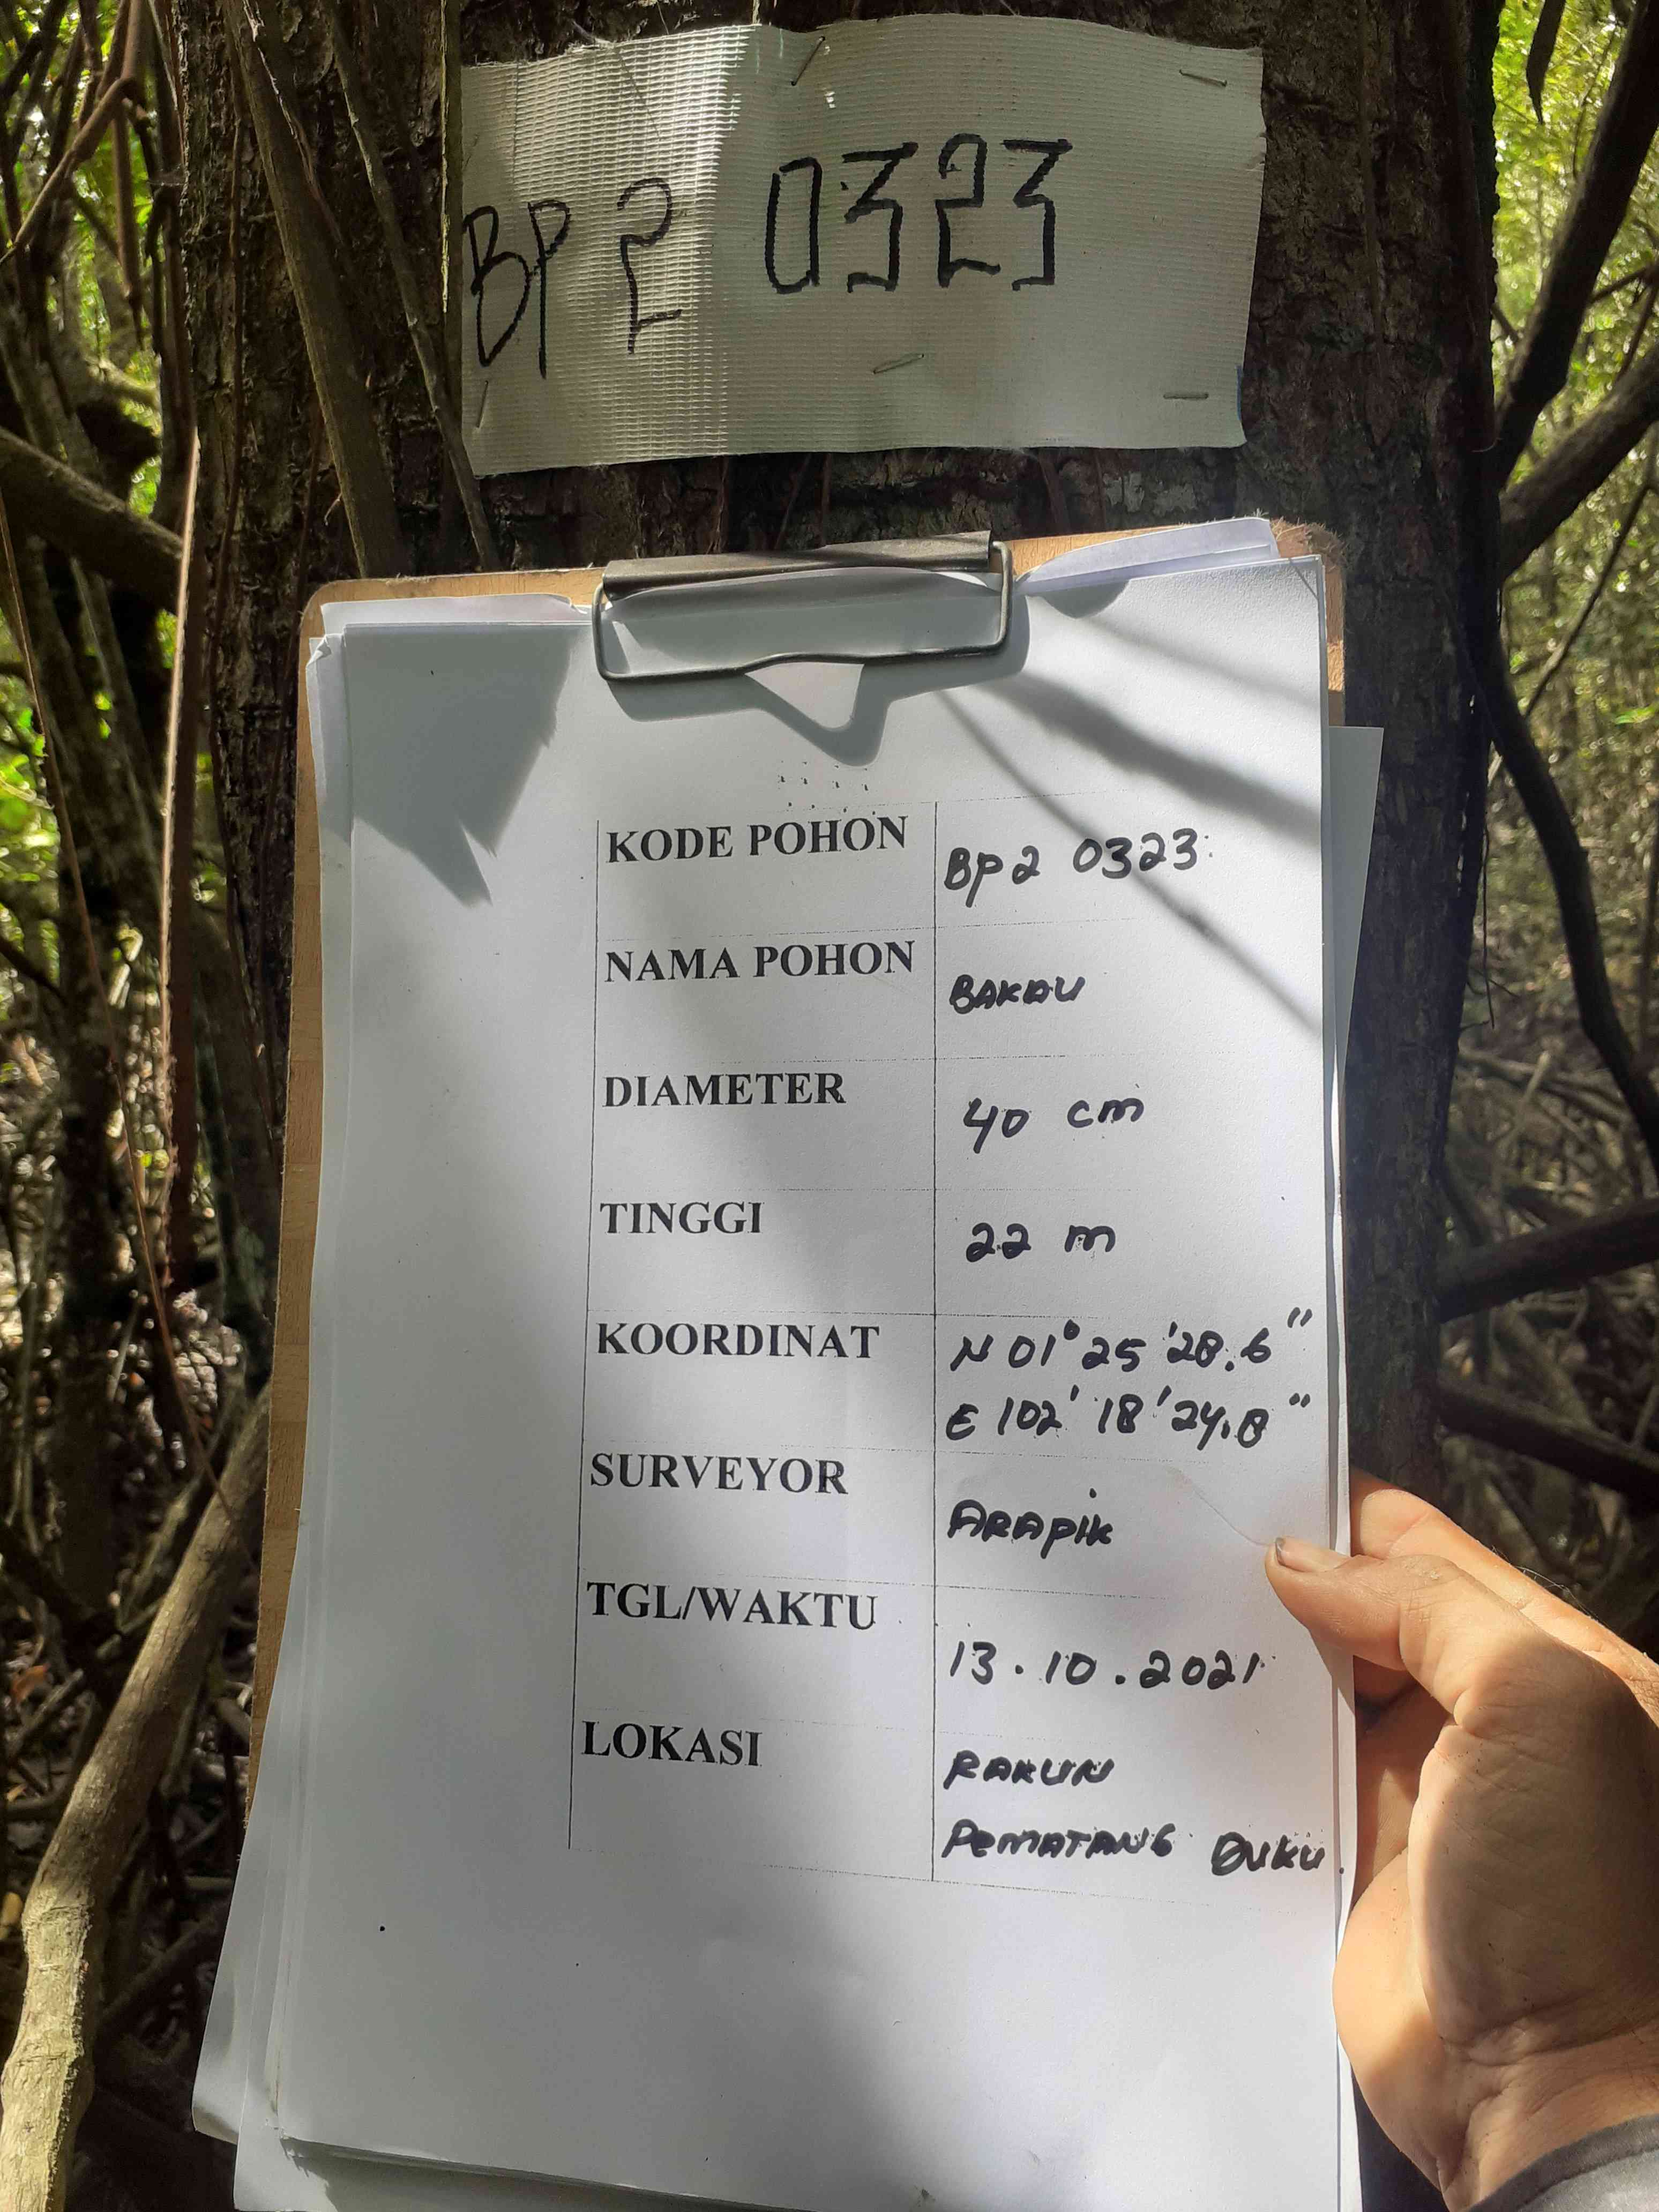 BP2 0323
KODE POHON BP2 0323
NAMA POHON BAKAU
DIAMETER 40 cm
TINGGI 22 m
KOORDINAT N 01° 25 '28.6"
E 102' 18 '24.8"
SURVEYOR ARAPIK
TGL/WAKTU 13.10.2021
LOKASI RAKUN
PEMATANG DUKU.